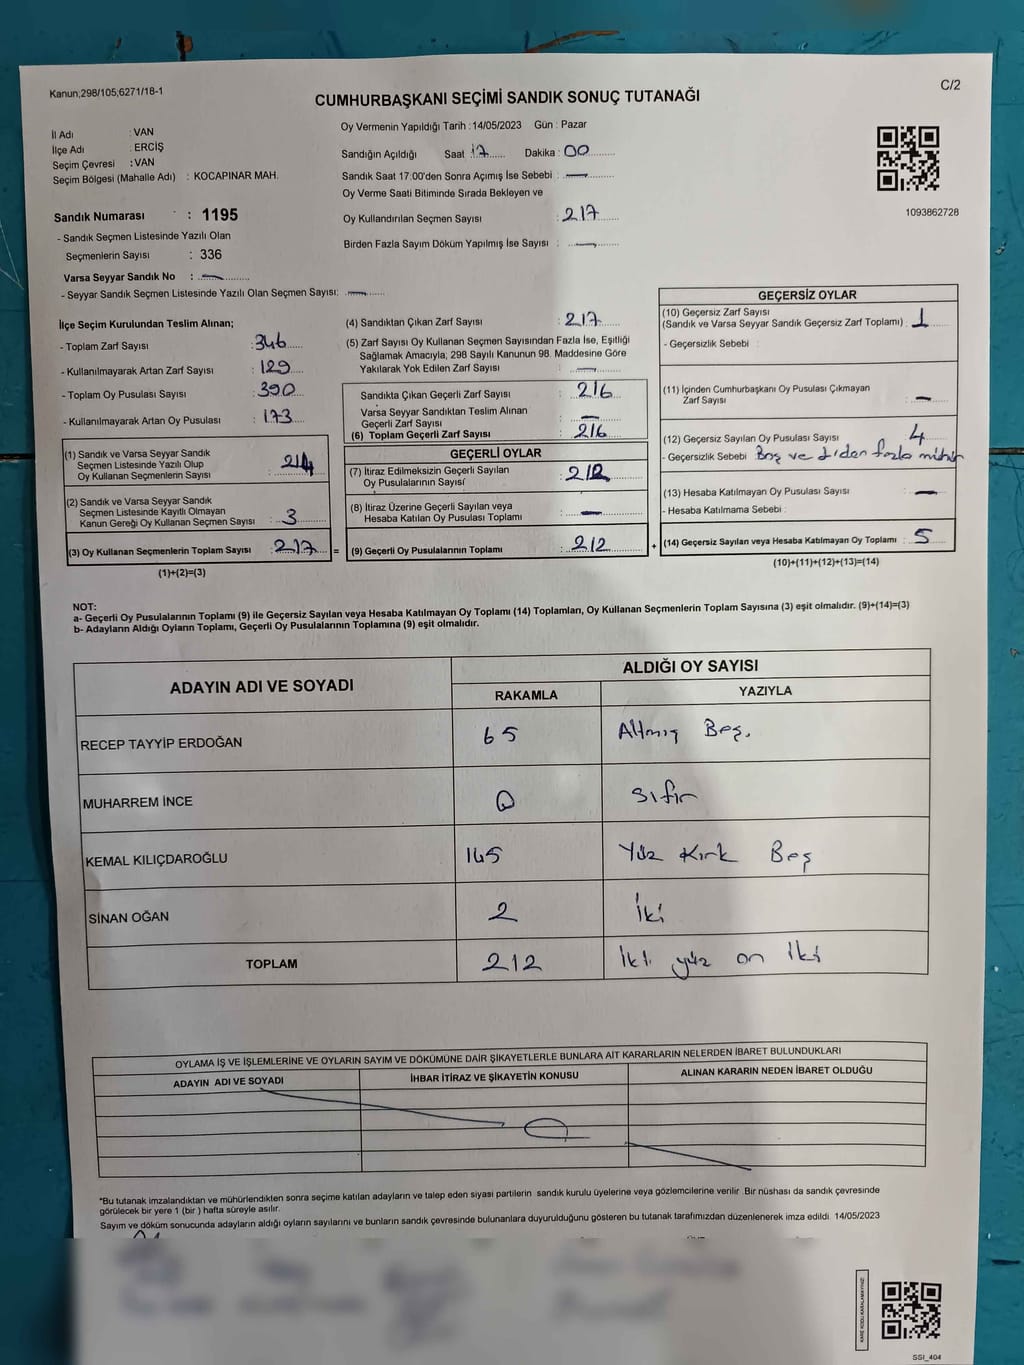 Kanun;298/105;6271/18-1
C/2
CUMHURBAŞKANI SEÇİMİ SANDIK SONUÇ TUTANAĞI
İl Adı : VAN
İlçe Adı : ERCİŞ
Seçim Çevresi : VAN
Seçim Bölgesi (Mahalle Adı) : KOCAPINAR MAH.
Sandık Numarası : 1195
- Sandık Seçmen Listesinde Yazılı Olan
Seçmenlerin Sayısı : 336
Varsa Seyyar Sandık No : —
- Seyyar Sandık Seçmen Listesinde Yazılı Olan Seçmen Sayısı: —
Oy Vermenin Yapıldığı Tarih : 14/05/2023 Gün : Pazar
Sandığın Açıldığı Saat : 17 Dakika : 00
Sandık Saat 17:00'den Sonra Açımış İse Sebebi : —
Oy Verme Saati Bitiminde Sırada Bekleyen ve
Oy Kullandırılan Seçmen Sayısı : 217
Birden Fazla Sayım Döküm Yapılmış İse Sayısı : —
1093862728
İlçe Seçim Kurulundan Teslim Alınan;
- Toplam Zarf Sayısı : 346
- Kullanılmayarak Artan Zarf Sayısı : 129
- Toplam Oy Pusulası Sayısı : 390
- Kullanılmayarak Artan Oy Pusulası : 173
(1) Sandık ve Varsa Seyyar Sandık
Seçmen Listesinde Yazılı Olup
Oy Kullanan Seçmenlerin Sayısı : 214
(2) Sandık ve Varsa Seyyar Sandık
Seçmen Listesinde Kayıtlı Olmayan
Kanun Gereği Oy Kullanan Seçmen Sayısı : 3
(3) Oy Kullanan Seçmenlerin Toplam Sayısı : 217 =
(1)+(2)=(3)
(4) Sandıktan Çıkan Zarf Sayısı : 217
(5) Zarf Sayısı Oy Kullanan Seçmen Sayısından Fazla İse, Eşitliği
Sağlamak Amacıyla, 298 Sayılı Kanunun 98. Maddesine Göre
Yakılarak Yok Edilen Zarf Sayısı : —
Sandıkta Çıkan Geçerli Zarf Sayısı : 216
Varsa Seyyar Sandıktan Teslim Alınan
Geçerli Zarf Sayısı : —
(6) Toplam Geçerli Zarf Sayısı : 216
GEÇERLİ OYLAR
(7) İtiraz Edilmeksizin Geçerli Sayılan
Oy Pusulalarının Sayısı : 212
(8) İtiraz Üzerine Geçerli Sayılan veya
Hesaba Katılan Oy Pusulası Toplamı : —
(9) Geçerli Oy Pusulalarının Toplamı : 212 +
GEÇERSİZ OYLAR
(10) Geçersiz Zarf Sayısı
(Sandık ve Varsa Seyyar Sandık Geçersiz Zarf Toplamı) : 1
- Geçersizlik Sebebi :
(11) İçinden Cumhurbaşkanı Oy Pusulası Çıkmayan
Zarf Sayısı : —
(12) Geçersiz Sayılan Oy Pusulası Sayısı : 4
- Geçersizlik Sebebi : Boş ve 1'den fazla mühür
(13) Hesaba Katılmayan Oy Pusulası Sayısı : —
- Hesaba Katılmama Sebebi :
(14) Geçersiz Sayılan veya Hesaba Katılmayan Oy Toplamı : 5
(10)+(11)+(12)+(13)=(14)
NOT:
a- Geçerli Oy Pusulalarının Toplamı (9) ile Geçersiz Sayılan veya Hesaba Katılmayan Oy Toplamı (14) Toplamları, Oy Kullanan Seçmenlerin Toplam Sayısına (3) eşit olmalıdır. (9)+(14)=(3)
b- Adayların Aldığı Oyların Toplamı, Geçerli Oy Pusulalarının Toplamına (9) eşit olmalıdır.
ADAYIN ADI VE SOYADI ALDIĞI OY SAYISI
RAKAMLA YAZIYLA
RECEP TAYYİP ERDOĞAN 65 Altmış Beş.
MUHARREM İNCE 0 Sıfır
KEMAL KILIÇDAROĞLU 145 Yüz Kırk Beş
SİNAN OĞAN 2 İki
TOPLAM 212 İki yüz on İki
OYLAMA İŞ VE İŞLEMLERİNE VE OYLARIN SAYIM VE DÖKÜMÜNE DAİR ŞİKAYETLERLE BUNLARA AİT KARARLARIN NELERDEN İBARET BULUNDUKLARI
ADAYIN ADI VE SOYADI İHBAR İTİRAZ VE ŞİKAYETİN KONUSU ALINAN KARARIN NEDEN İBARET OLDUĞU
*Bu tutanak imzalandıktan ve mühürlendikten sonra seçime katılan adayların ve talep eden siyasi partilerin sandık kurulu üyelerine veya gözlemcilerine verilir. Bir nüshası da sandık çevresinde
görülecek bir yere 1 (bir ) hafta süreyle asılır.
Sayım ve döküm sonucunda adayların aldığı oyların sayılarını ve bunların sandık çevresinde bulunanlara duyurulduğunu gösteren bu tutanak tarafımızdan düzenlenerek imza edildi. 14/05/2023
KARE KODU KARALAMAYINIZ!
SSI_404